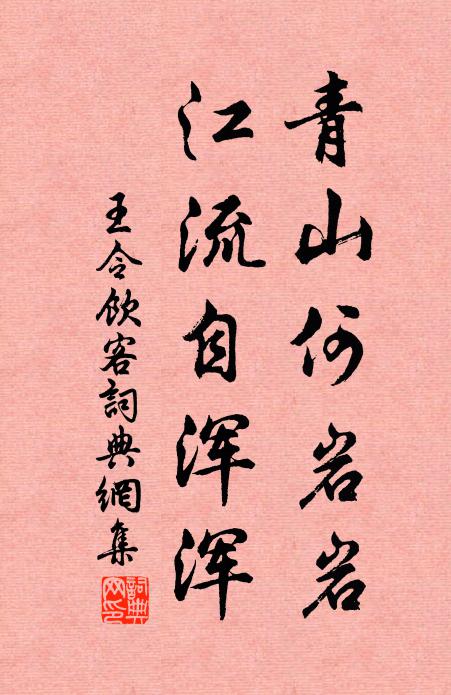 青山何岩岩
江流自浑浑
王令飲客詞典網集
詞典网印